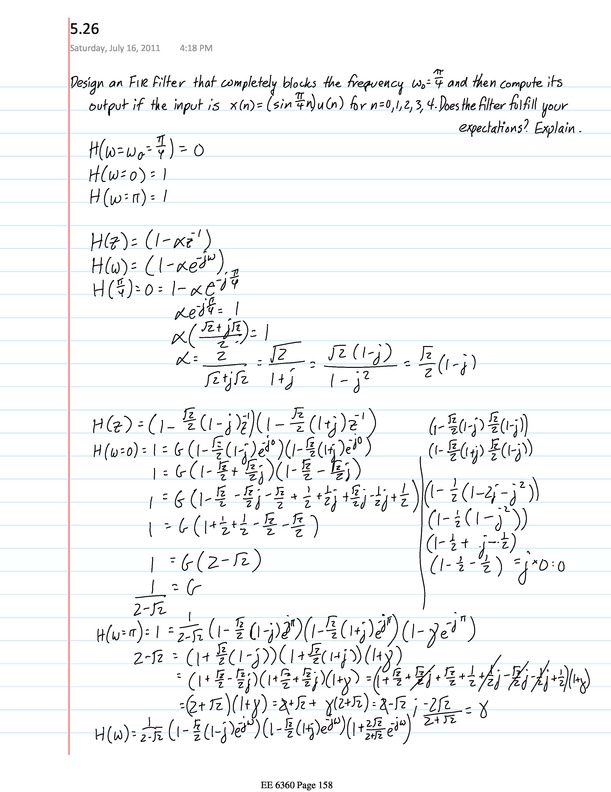 5.26
Saturday, July 16, 2011 4:18 PM
Design an FIR filter that completely blocks the frequency ω₀=π/4 and then compute its
output if the input is x(n)=(sin π/4 n)u(n) for n=0,1,2,3,4. Does the filter fulfill your
expectations? Explain.
H(ω=ω₀=π/4)=0
H(ω=0)=1
H(ω=π)=1
H(z)=(1-αz⁻¹)
H(ω)=(1-αe^-jω)
H(π/4)=0=1-αe^-jπ/4
αe^-jπ/4=1
α((√2+j√2)/2)=1
α=2/(√2+j√2)=√2/(1+j)=√2(1-j)/(1-j²)=√2/2(1-j)
H(z)=(1-√2/2(1-j)z⁻¹)(1-√2/2(1+j)z⁻¹)
H(ω=0)=1=G(1-√2/2(1-j)e^j0)(1-√2/2(1+j)e^j0)
1=G(1-√2/2+√2/2j)(1-√2/2-√2/2j)
1=G(1-√2/2-√2/2j-√2/2+1/2+1/2j+√2/2j-1/2j+1/2)
1=G(1+1/2+1/2-√2/2-√2/2)
1=G(2-√2)
1/(2-√2)=G
(1-√2/2(1-j)√2/2(1-j))
(1-√2/2(1+j)√2/2(1-j))
(1-1/2(1-2j-j²))
(1-1/2(1-j²))
(1-1/2+j-1/2)
(1-1/2-1/2)=j×0=0
H(ω=π)=1=1/(2-√2)(1-√2/2(1-j)e^-jπ)(1-√2/2(1+j)e^-jπ)(1-γe^-jπ)
2-√2=(1+√2/2(1-j))(1+√2/2(1+j))(1+γ)
=(1+√2/2-√2/2j)(1+√2/2+√2/2j)(1+γ)=(1+√2/2+√2/2j+√2/2+1/2+1/2j-√2/2j-1/2j+1/2)(1+γ)
=(2+√2)(1+γ)=2+√2+γ(2+√2)=2-√2; -2√2/(2+√2)=γ
H(ω)=1/(2-√2)(1-√2/2(1-j)e^-jω)(1-√2/2(1+j)e^-jω)(1+2√2/(2+√2)e^-jω)
EE 6360 Page 158